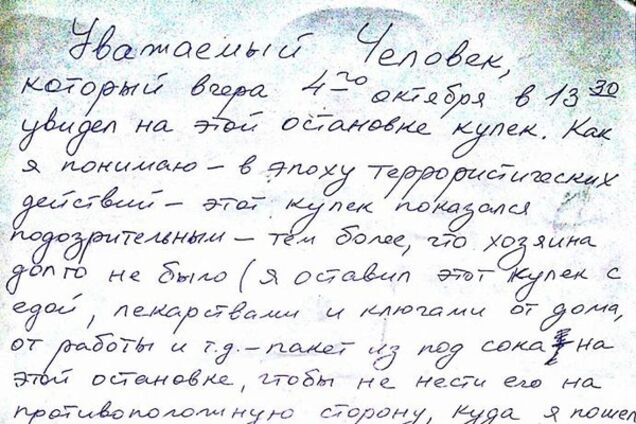 Уважаемый Человек,
который вчера 4го октября в 13 30
увидел на этой остановке кулек. Как
я понимаю – в эпоху террористических
действий – этот кулек показался
подозрительным – тем более, что хозяина
долго не было (я оставил этот кулек с
едой, лекарствами и ключами от дома,
от работы и т.д. – пакет из под сока на
этой остановке, чтобы не нести его на
противоположную сторону, куда я пошел